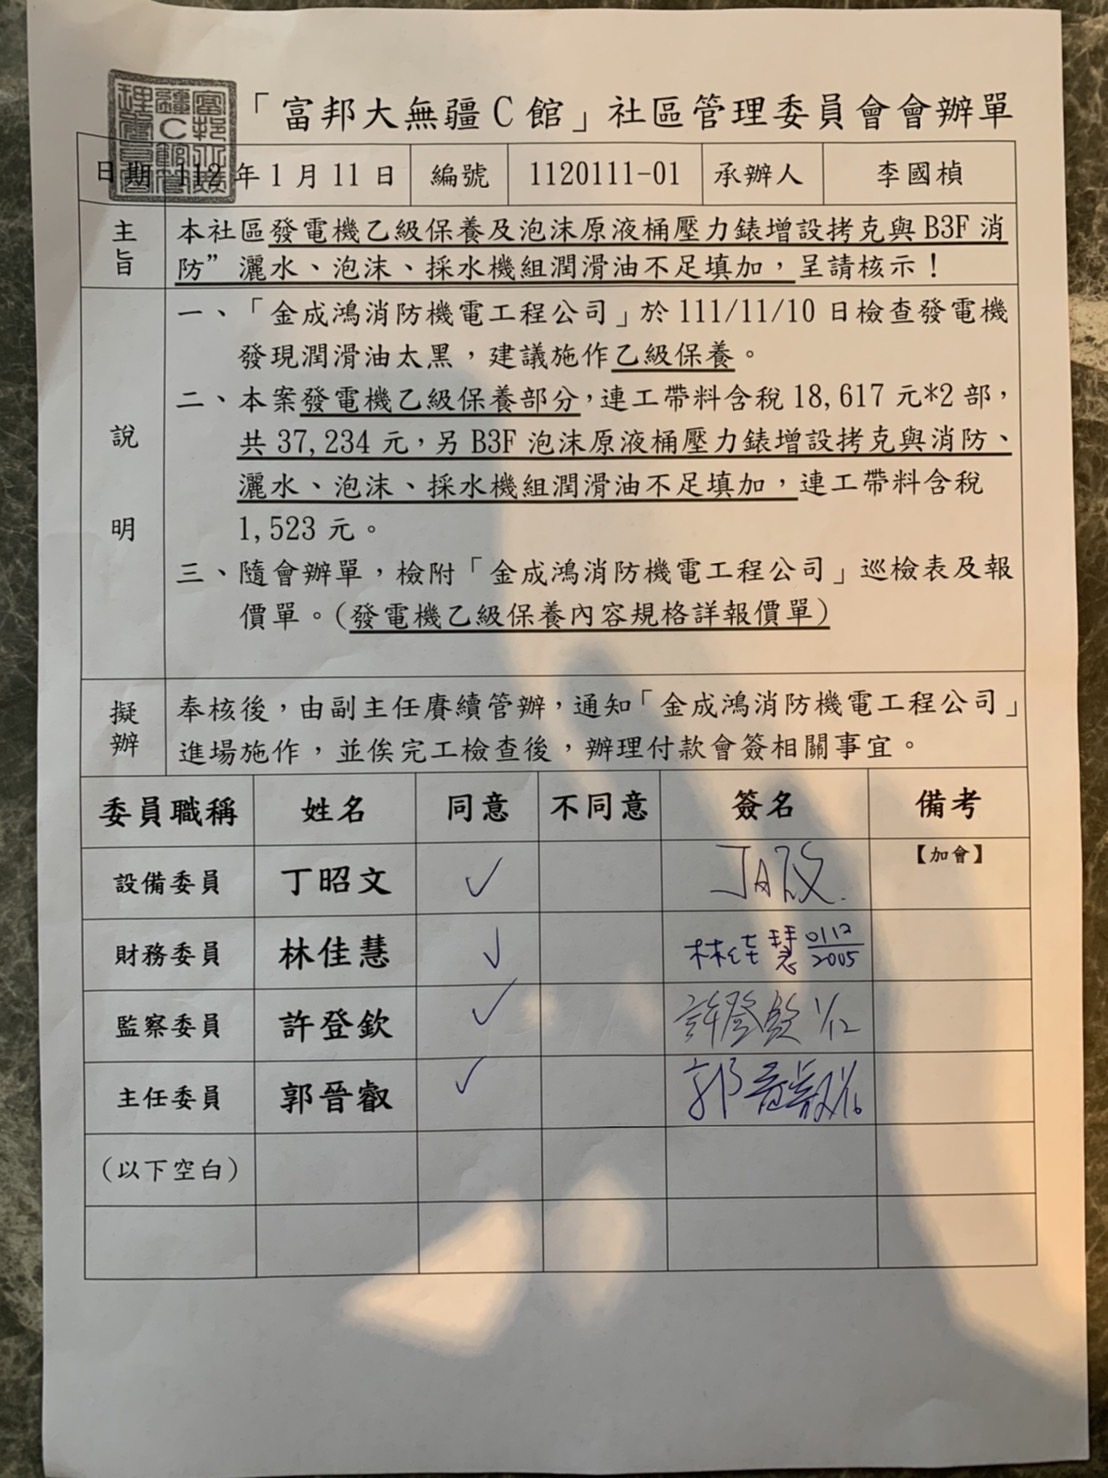 「富邦大無疆C館」社區管理委員會會辦單
日期 112年1月11日 編號 1120111-01 承辦人 李國楨
主旨 本社區發電機乙級保養及泡沫原液桶壓力錶增設拷克與B3F消
防”灑水、泡沫、採水機組潤滑油不足填加，呈請核示！
說明
一、「金成鴻消防機電工程公司」於111/11/10日檢查發電機
發現潤滑油太黑，建議施作乙級保養。
二、本案發電機乙級保養部分，連工帶料含稅18,617元*2部，
共37,234元，另B3F泡沫原液桶壓力錶增設拷克與消防、
灑水、泡沫、採水機組潤滑油不足填加，連工帶料含稅
1,523元。
三、隨會辦單，檢附「金成鴻消防機電工程公司」巡檢表及報
價單。(發電機乙級保養內容規格詳報價單)
擬辦 奉核後，由副主任賡續管辦，通知「金成鴻消防機電工程公司」
進場施作，並俟完工檢查後，辦理付款會簽相關事宜。
委員職稱 姓名 同意 不同意 簽名 備考
設備委員 丁昭文 ✓ 【加會】
財務委員 林佳慧 ✓ 林佳慧 0112 2005
監察委員 許登欽 ✓ 許登欽 1/12
主任委員 郭晉叡 ✓ 郭晉叡
(以下空白)